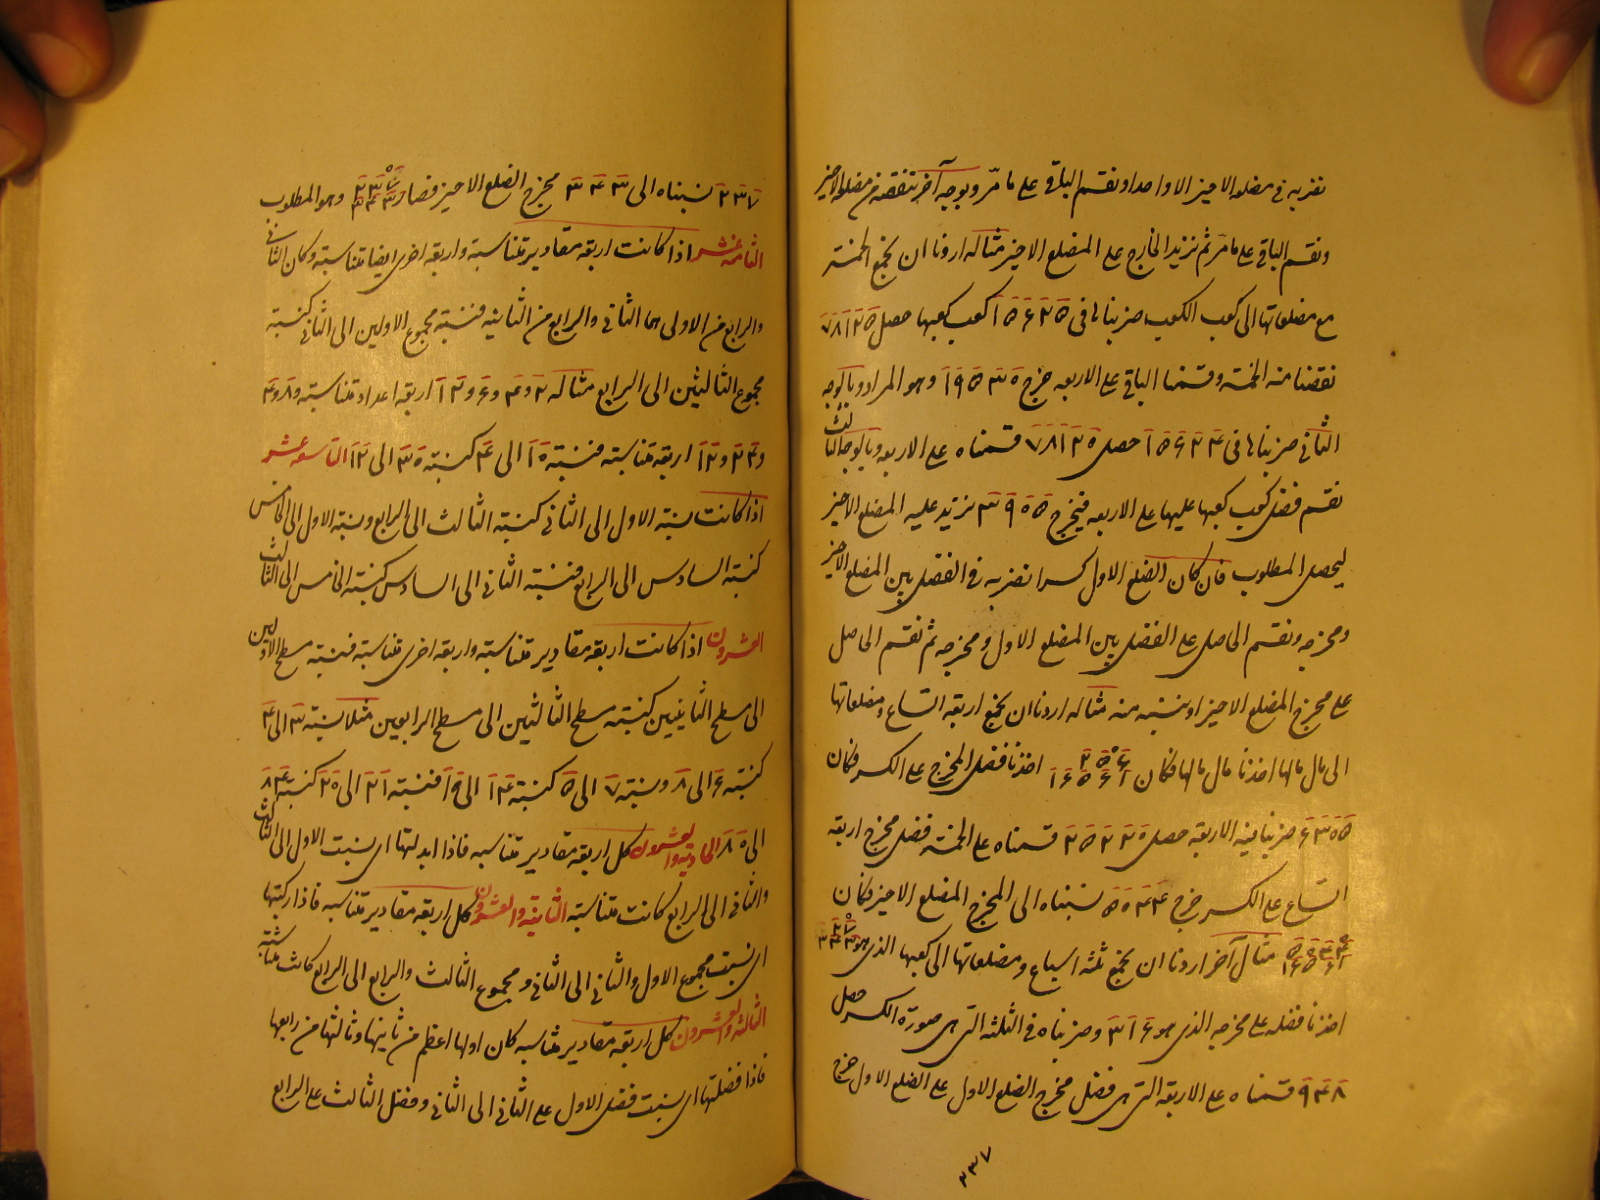 نضربه فى مضلعه الاخير الا واحدا و نقسم الباقى على ما مرّ و بوجه آخر ننقصه من مضلعه الاخير
و نقسم الباقى على ما مرّ ثم نزيد الخارج على المضلع الاخير مثاله اردنا ان نجمع الخمسة
مع مضلعاتها الى كعب الكعب ضربناها فى ۱۵۶۲۵ كعب كعبها حصل ۷۸۱۲۵
نقصنا منه الخمسة و قسمنا الباقى على الاربعه خرج ۱۹۵۳۰ و هو المراد و بالوجه
الثانى ضربناها فى ۱۵۶۲۴ حصل ۷۸۱۲۰ قسمناه على الاربعه و بالوجه الثالث
نقسم فضل كعب كعبها عليها على الاربعه فيخرج ۳۹۰۵ نزيد عليه المضلع الاخير
ليحصل المطلوب فان كان الضلع الاول كسرا نضربه فى الفضل بين المضلع الاخير
و مخرجه و نقسم الحاصل على الفضل بين المضلع الاول و مخرجه ثم نقسم الحاصل
على مخرج المضلع الاخير او ننسبه منه مثاله اردنا ان نجمع اربعة اتساع و مضلعاتها
الى مال مالها اخذنا مال مالها فكان ۲۵۶ ۶۵۶۱ اخذنا فضل المخرج على الكسر فكان
۶۳۰۵ ضربناه فى الاربعة حصل ۲۵۲۲۰ قسمناه على الخمسة فضل مخرج اربعة
اتساع على الكسر خرج ۵۰۴۴ نسبناه الى المخرج المضلع الاخير فكان
۵۰۴۴ ۶۵۶۱ مثال آخر اردنا ان نجمع ثلثة اسباع و مضلعاتها الى كعبها الذى هو ۲۷ ۳۴۳
اخذنا فضله على مخرجه الذى هو ۳۱۶ و ضربناه فى الثلثة التى هى صورة الكسر حصل
۹۴۸ قسمناه على الاربعة التى هى فضل مخرج الضلع الاول على الضلع الاول خرج
۲۳۷
۲۳۷ نسبناه الى ۳۴۳ مخرج الضلع الاخير فصار ۲۳۷ ۳۴۳ و هو المطلوب
الثامنة عشر اذا كانت اربعة مقادير متناسبة و اربعة اخرى ايضا متناسبة و كان الثانى
و الرابع من الاولى هما الثانى و الرابع من الثانيه فنسبة مجموع الاولين الى الثانى كنسبة
مجموع الثالثين الى الرابع مثاله ۲ و ۴ و ۶ و ۱۲ اربعة اعداد متناسبة و ۸ و ۴
و ۲۴ و ۱۲ اربعة متناسبة فنسبة ۱۰ الى ۴ كنسبة ۳۰ الى ۱۲ التاسعة عشر
اذا كانت نسبة الاول الى الثانى كنسبة الثالث الى الرابع و نسبة الاول الى الخامس
كنسبة السادس الى الرابع فنسبة الثانى الى السادس كنسبة الخامس الى الثالث
العشرون اذا كانت اربعة مقادير متناسبة و اربعة اخرى متناسبة فنسبة مسطح الاولين
الى مسطح الثانيين كنسبة مسطح الثالثين الى مسطح الرابعين مثلا نسبة ۳ الى ۴
كنسبة ۶ الى ۸ و نسبة ۷ الى ۵ كنسبة ۱۴ الى ۱۰ فنسبة ۲۱ الى ۲۰ كنسبة ۸۴
الى ۸۰ الحادية و العشرون كل اربعة مقادير متناسبه فاذا ابدلتها اى نسبت الاول الى الثالث
و الثانى الى الرابع كانت متناسبة الثانية و العشرون كل اربعة مقادير متناسبه فاذا ركبتها
اى نسبت مجموع الاول و الثانى الى الثانى و مجموع الثالث و الرابع الى الرابع كانت متناسبة
الثالثة و العشرون كل اربعة مقادير متناسبه كان اولها اعظم من ثانيها و ثالثها من رابعها
فاذا فصلتها اى نسبت فضل الاول على الثانى الى الثانى و فضل الثالث على الرابع